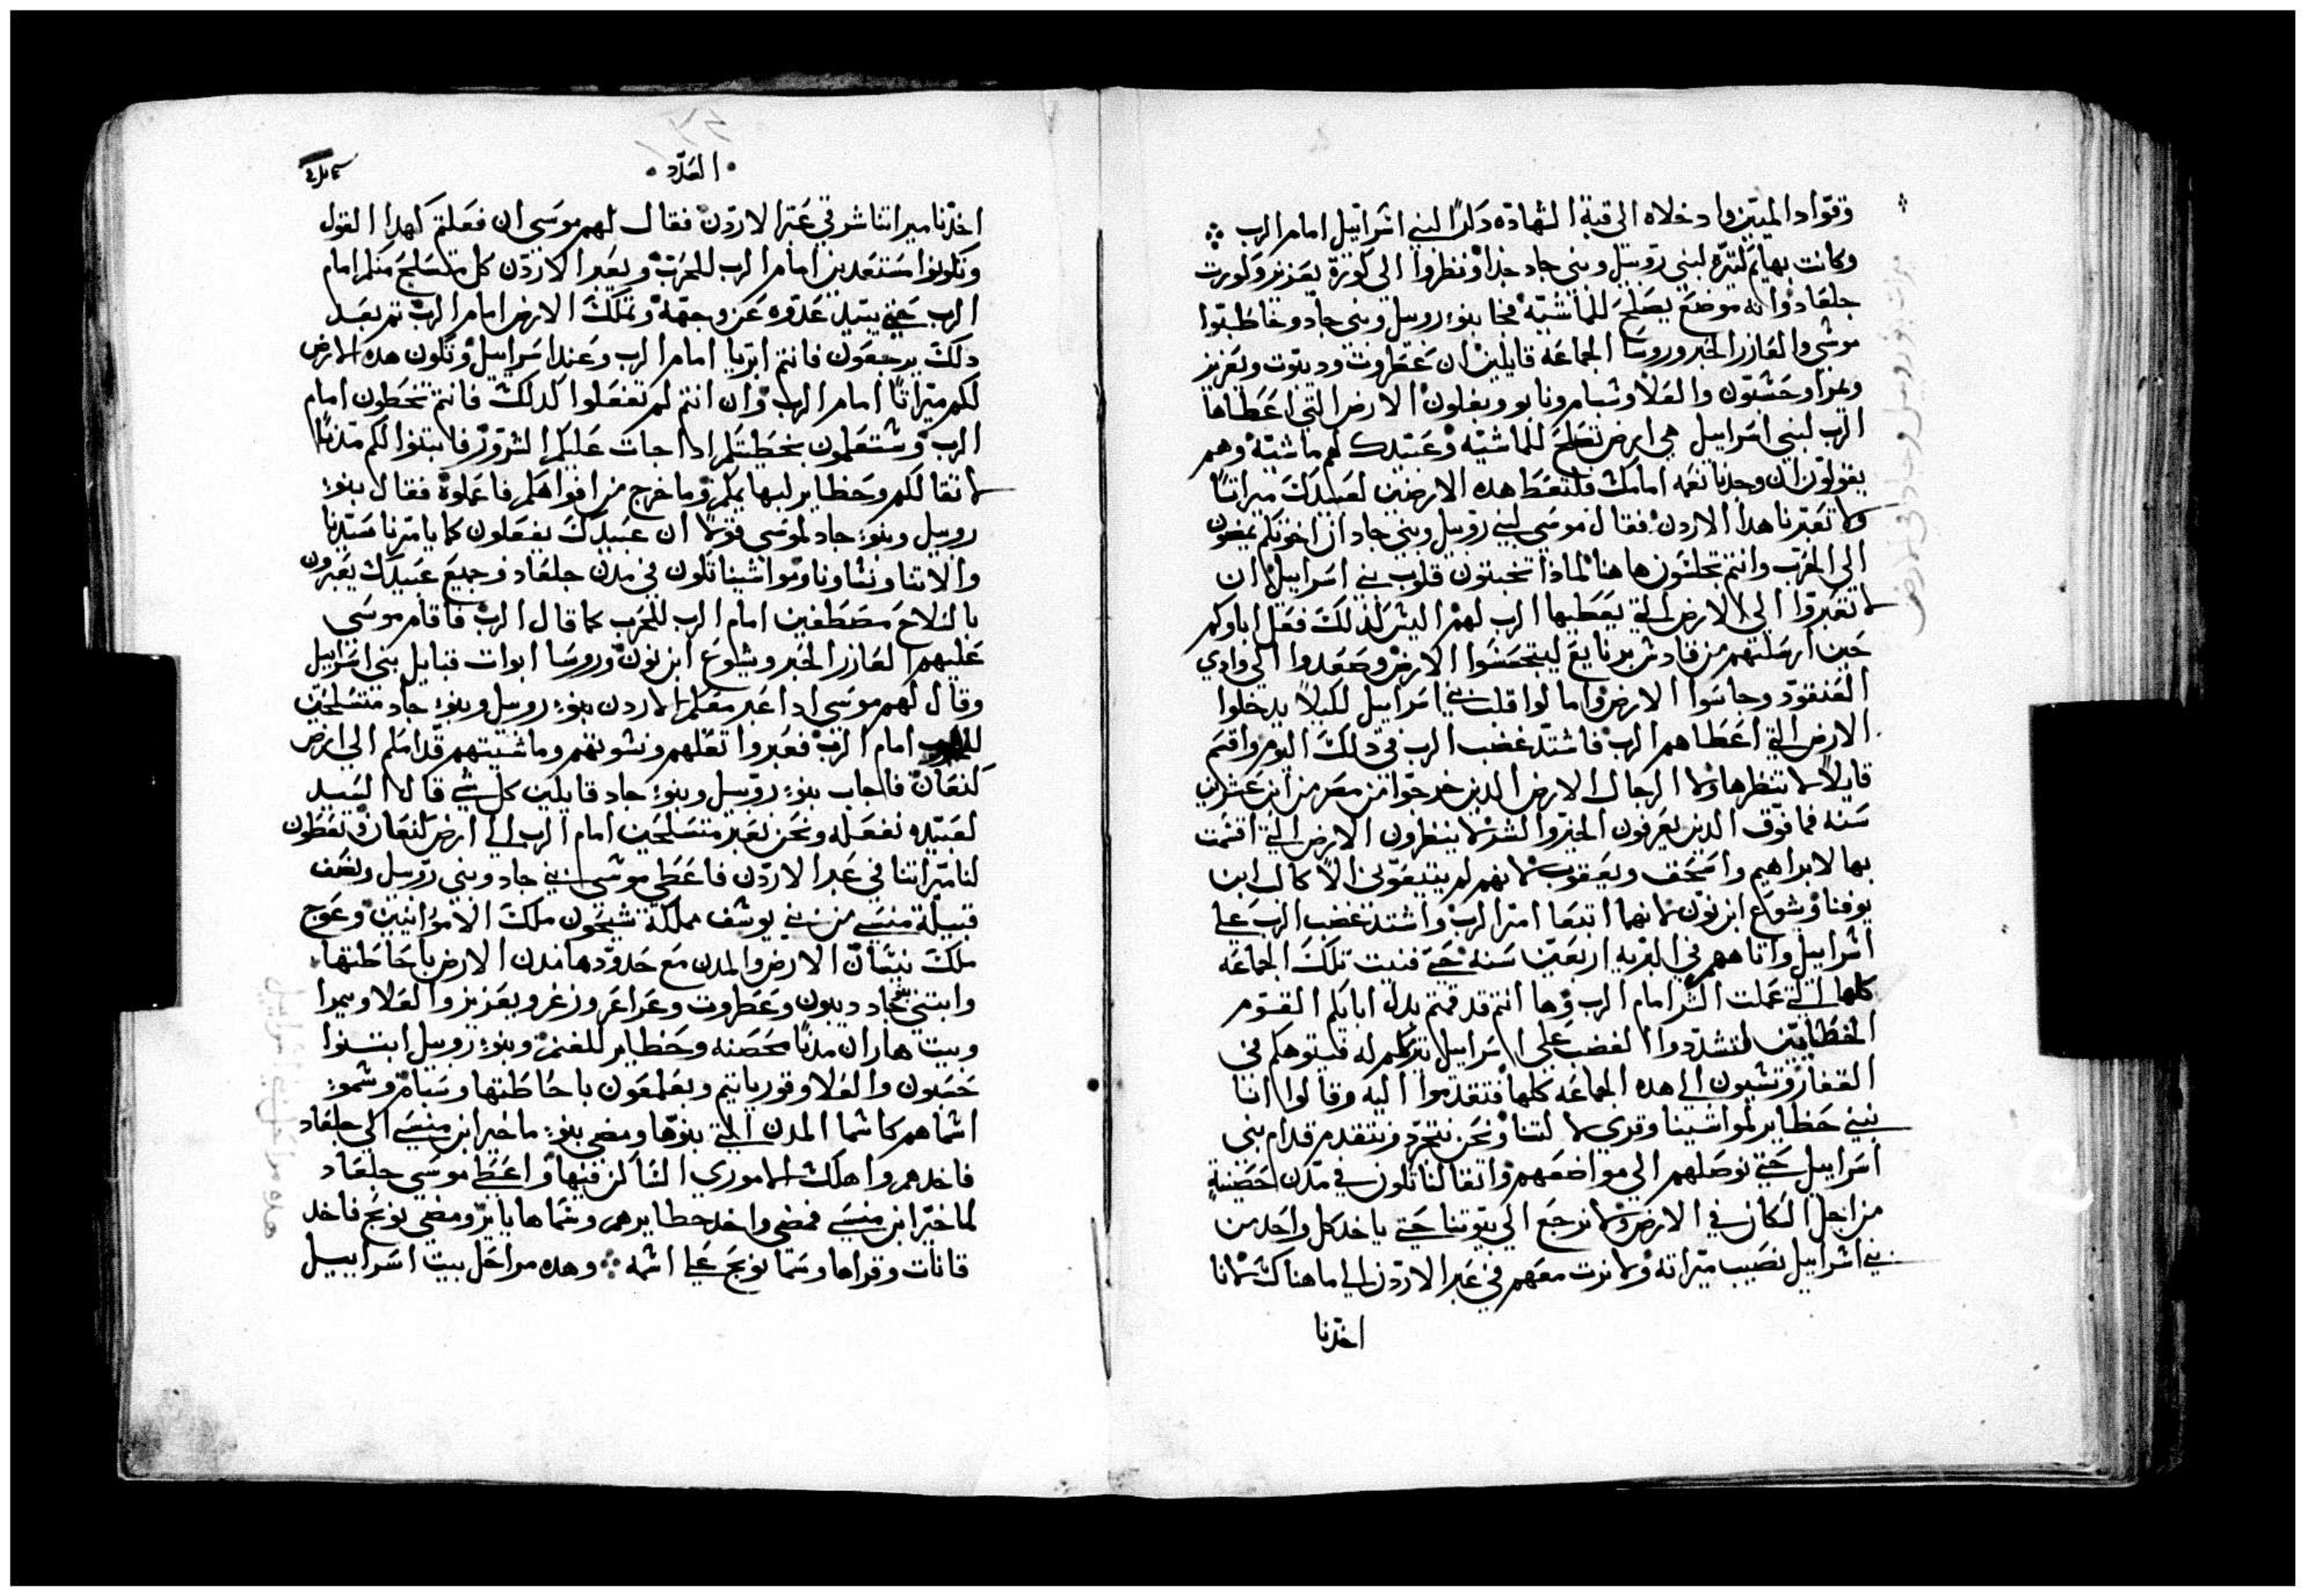 وقواد الميتين وادخلاه الى قبة الشهاده دكرًا لبني اسراييل امام الرب
وكانت بهايم كثيره لبني روبيل وبني جاد جدا ونظروا الى كورة يعزير وكورت
جلعاد وانه موضع يصلح للماشيه فجا بنو روبيل وبني جاد وخاطبوا
موسى والعازر الحبر وروسا الجماعه قايلين ان عطروت وديبوت ويعزيز
وعرا وحشبون والعلا وشبام ونابو وبعلون الارض التي اعطاها
الرب لبني اسراييل هي ارض تصلح للماشيه وعبيدك لهم ماشيه وهم
يقولون ان وجدنا نعمه امامك فلتعط هده الارضين لعبيدك ميراثًا
ولا تعبرنا هدا الاردن فقال موسى لبني روبيل وبني جاد ان اخوتكم يمضون
الى الحرب وانتم تجلسون هاهنا لماذا تخبتون قلوب بني اسراييل ان
لا تعبروا الى الارض التي يعطيها الرب لهم اليس لذلك فعل اباوكم
حين ارسلتهم من قادش برنايع ليتجسسوا الارض وصعدوا الى وادي
العنقود وجاسوا الارض وامالوا قلب بني اسراييل لكيلا يدخلوا
الارض التي اعطاهم الرب فاشتد غضب الرب في دلك اليوم واقسم
قايلاً لا تنظرها ولا الرجال الارض الدين خرجوا من مصر من ابن عشرين
سنه فما فوق الدين يعرفون الخير والشر لا ينظرون الارض التي اقسمت
بها لابراهيم واسحق ويعقوب لانهم لم يتبعوني الا كالب ابن
يوفنا ويشوع ابن نون لانهما اتبعا امر الرب واشتد غضب الرب على
اسراييل واتاههم في البريه اربعين سنه حتى فنيت تلك الجماعه
كلها التي عملت الشر امام الرب وها انتم قد قمتم بدل ابايكم القوم
الخطايين لتشددوا الغضب على اسراييل فيتوهكم في
القفار وتسيون الى هده الجماعه كلها فتقدموا اليه وقالوا اننا
نبني حظاير لمواشينا وقرى لا ونحن نتجرد ونتقدم قدام بني
اسراييل حتى نوصلهم الى مواضعهم واتقالنا تكون في مدن حصينة
من اجل السكان في الارض ولا نرجع الى بيوتنا حتى ياخد كل واحد من
بني اسراييل نصيب ميراته ولا نرت معهم في عبر الاردن الى ما هناك لانا
اخدنا
العدد
اخدنا ميراتنا شرقي عبر الاردن فقال لهم موسى ان فعلتم كهدا القول
وتكونوا مستعدين امام الرب للحرب ويعبر الاردن كل متسلح منكم امام
الرب حتى يبيد عدوه عن وجهه وتملك الارض امام الرب تم بعد
دلك يرجعون فانتم ابريا امام الرب وعند اسراييل وتكون هده الارض
لكم ميراتًا امام الرب وان انتم لم تفعلوا كدلك فانتم تخطون امام
الرب وستعلمون بخطيتكم ادا جات عليكم الشرور فابتنوا لكم مدنًا
لاتقالكم وحظاير لبهايمكم وما خرج من افواهكم فاعملوه فقال بنو
روبيل وبنو جاد لموسى قولا ان عبيدك يفعلون كما يامرنا سيدنا
والاتنا ونساونا ومواشينا تكون في مدن جلعاد وجميع عبيدك يعبرون
بالسلاح مصطفين امام الرب للحرب كما قال الرب فاقام موسى
عليهم العازر الحبر ويشوع ابن نون وروسا ابوات قبايل بني اسراييل
وقال لهم موسى ادا عبر معكم الاردن بنو روبيل وبنو جاد متسلحين
امام الرب فعبروا تقلهم ونسوتهم وماشيتهم قدامكم الى ارض
كنعان فاجاب بنو روبيل وبنو جاد قايلين كل شي قال السيد
لعبيده نفعله ونحن نعبر متسلحين امام الرب الى ارض كنعان وتعطون
لنا ميراتنا في عبر الاردن فاعطى موسى لبني جاد وبني روبيل ونصف
قبيلة منسى من بني يوسف مملكة سيحون ملك الامورانيين وعوج
ملك نيسان الارض والمدن مع حدودها مدن الارض باحاطتها
وابتنى بنو جاد ديبون وعطروت وعراعر وزغر ويعزيز والعلا ويمرا
وبيت هاران مدنًا محصنه وحظاير للغنم وبنو روبيل ابتنوا
حسبون والعلا وقورياتيم وبعلمعون باحاطتها وسبام وسمو
اسماهم كاسما المدن التي بنوها ومضى بنو ماخير ابن منسى الى جلعاد
فاخدهم واهلك الاموري الساكن فيها واعطى موسى جلعاد
لماخير ابن منسى فمضى واخد حظايرهم وسماها يابر ومضى نوبح فاخد
قانات وقراها وسما نوبح على اسمه وهده مراحل بيت اسراييل